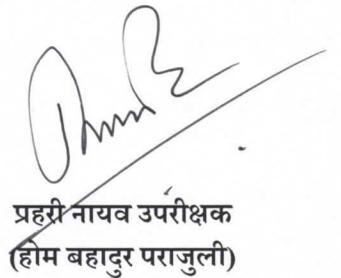 प्रहरी नायव उपरीक्षक
(होम बहादुर पराजुली)